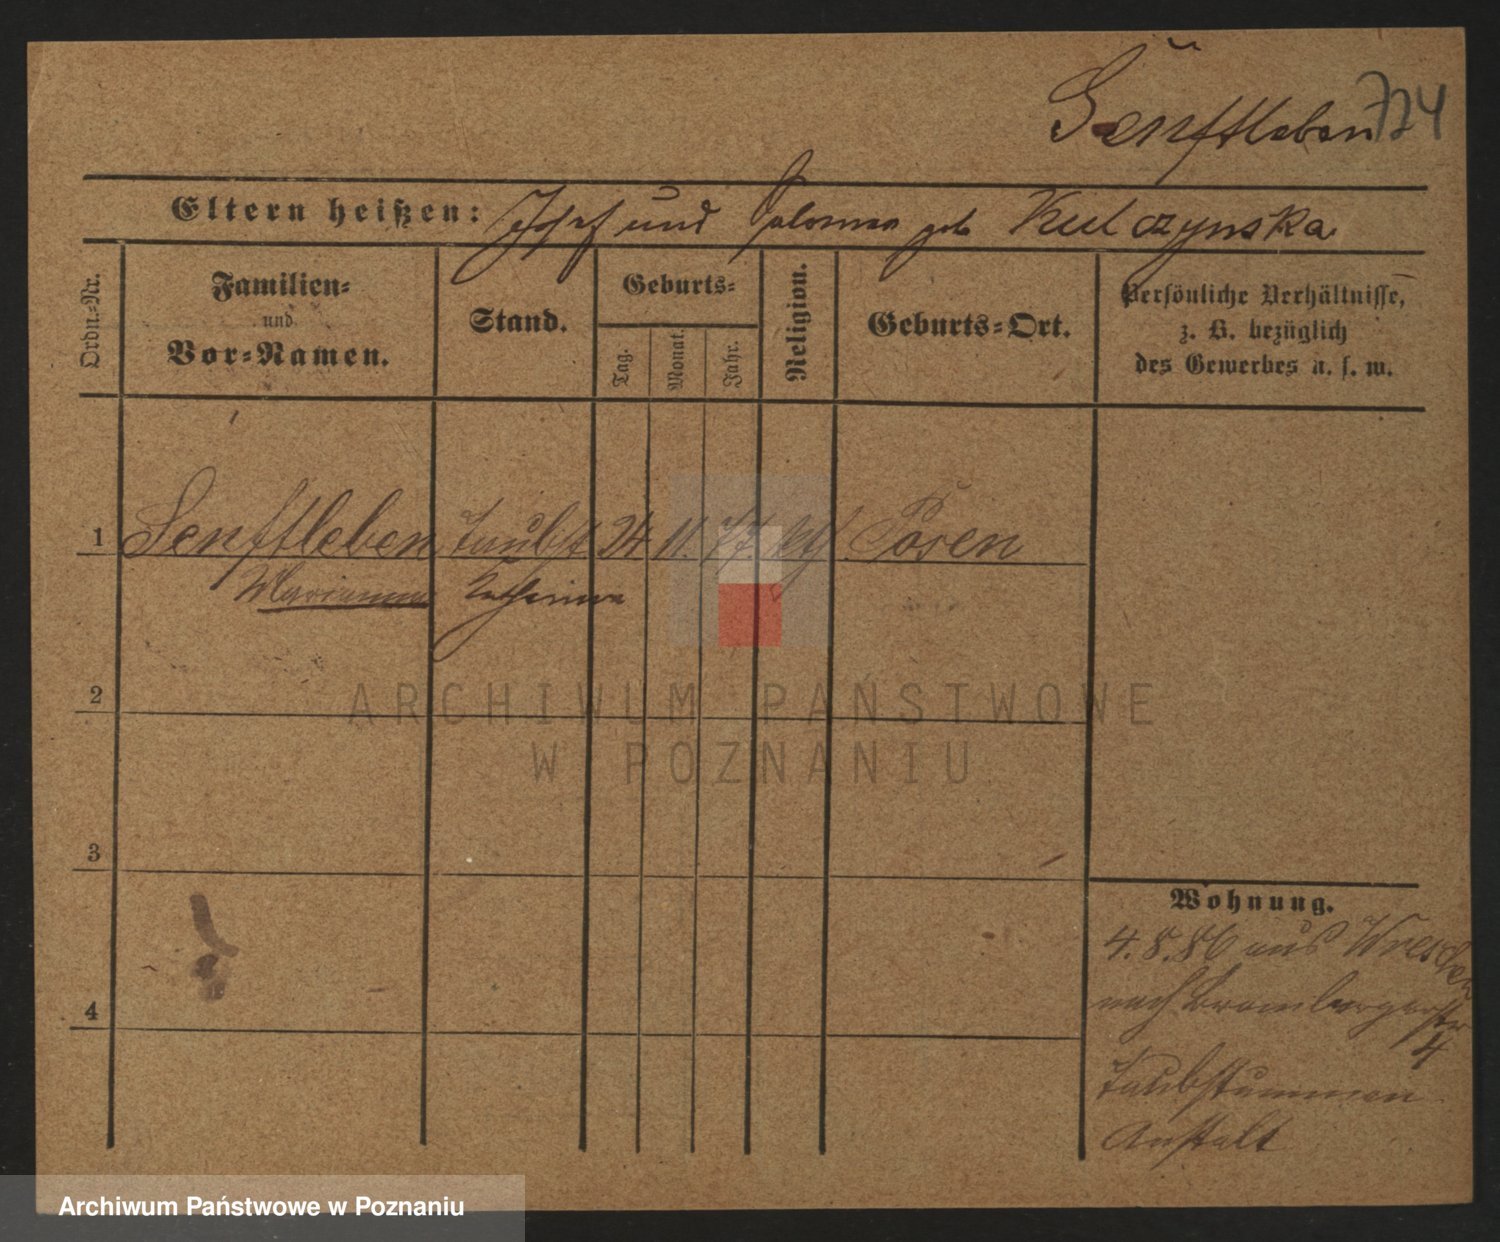 Senftleben 724
Eltern heißen: Josef und Salomea geb Kulczynska
Ordn.-Nr.
Familien-
und
Vor-Namen.
Stand.
Geburts-
Tag.
Monat.
Jahr.
Religion.
Geburts-Ort.
Persönliche Verhältnisse,
z. B. bezüglich
des Gewerbes u. s. w.
1 Senftleben taubst 24 11. 77 kth Posen
Marianna Katharina
2
3
4
Wohnung.
4.8.86 aus Wreschen
nach Brombergerstr
4
Taubstummen
Anstalt
ARCHIWUM PAŃSTWOWE
W POZNANIU
Archiwum Państwowe w Poznaniu